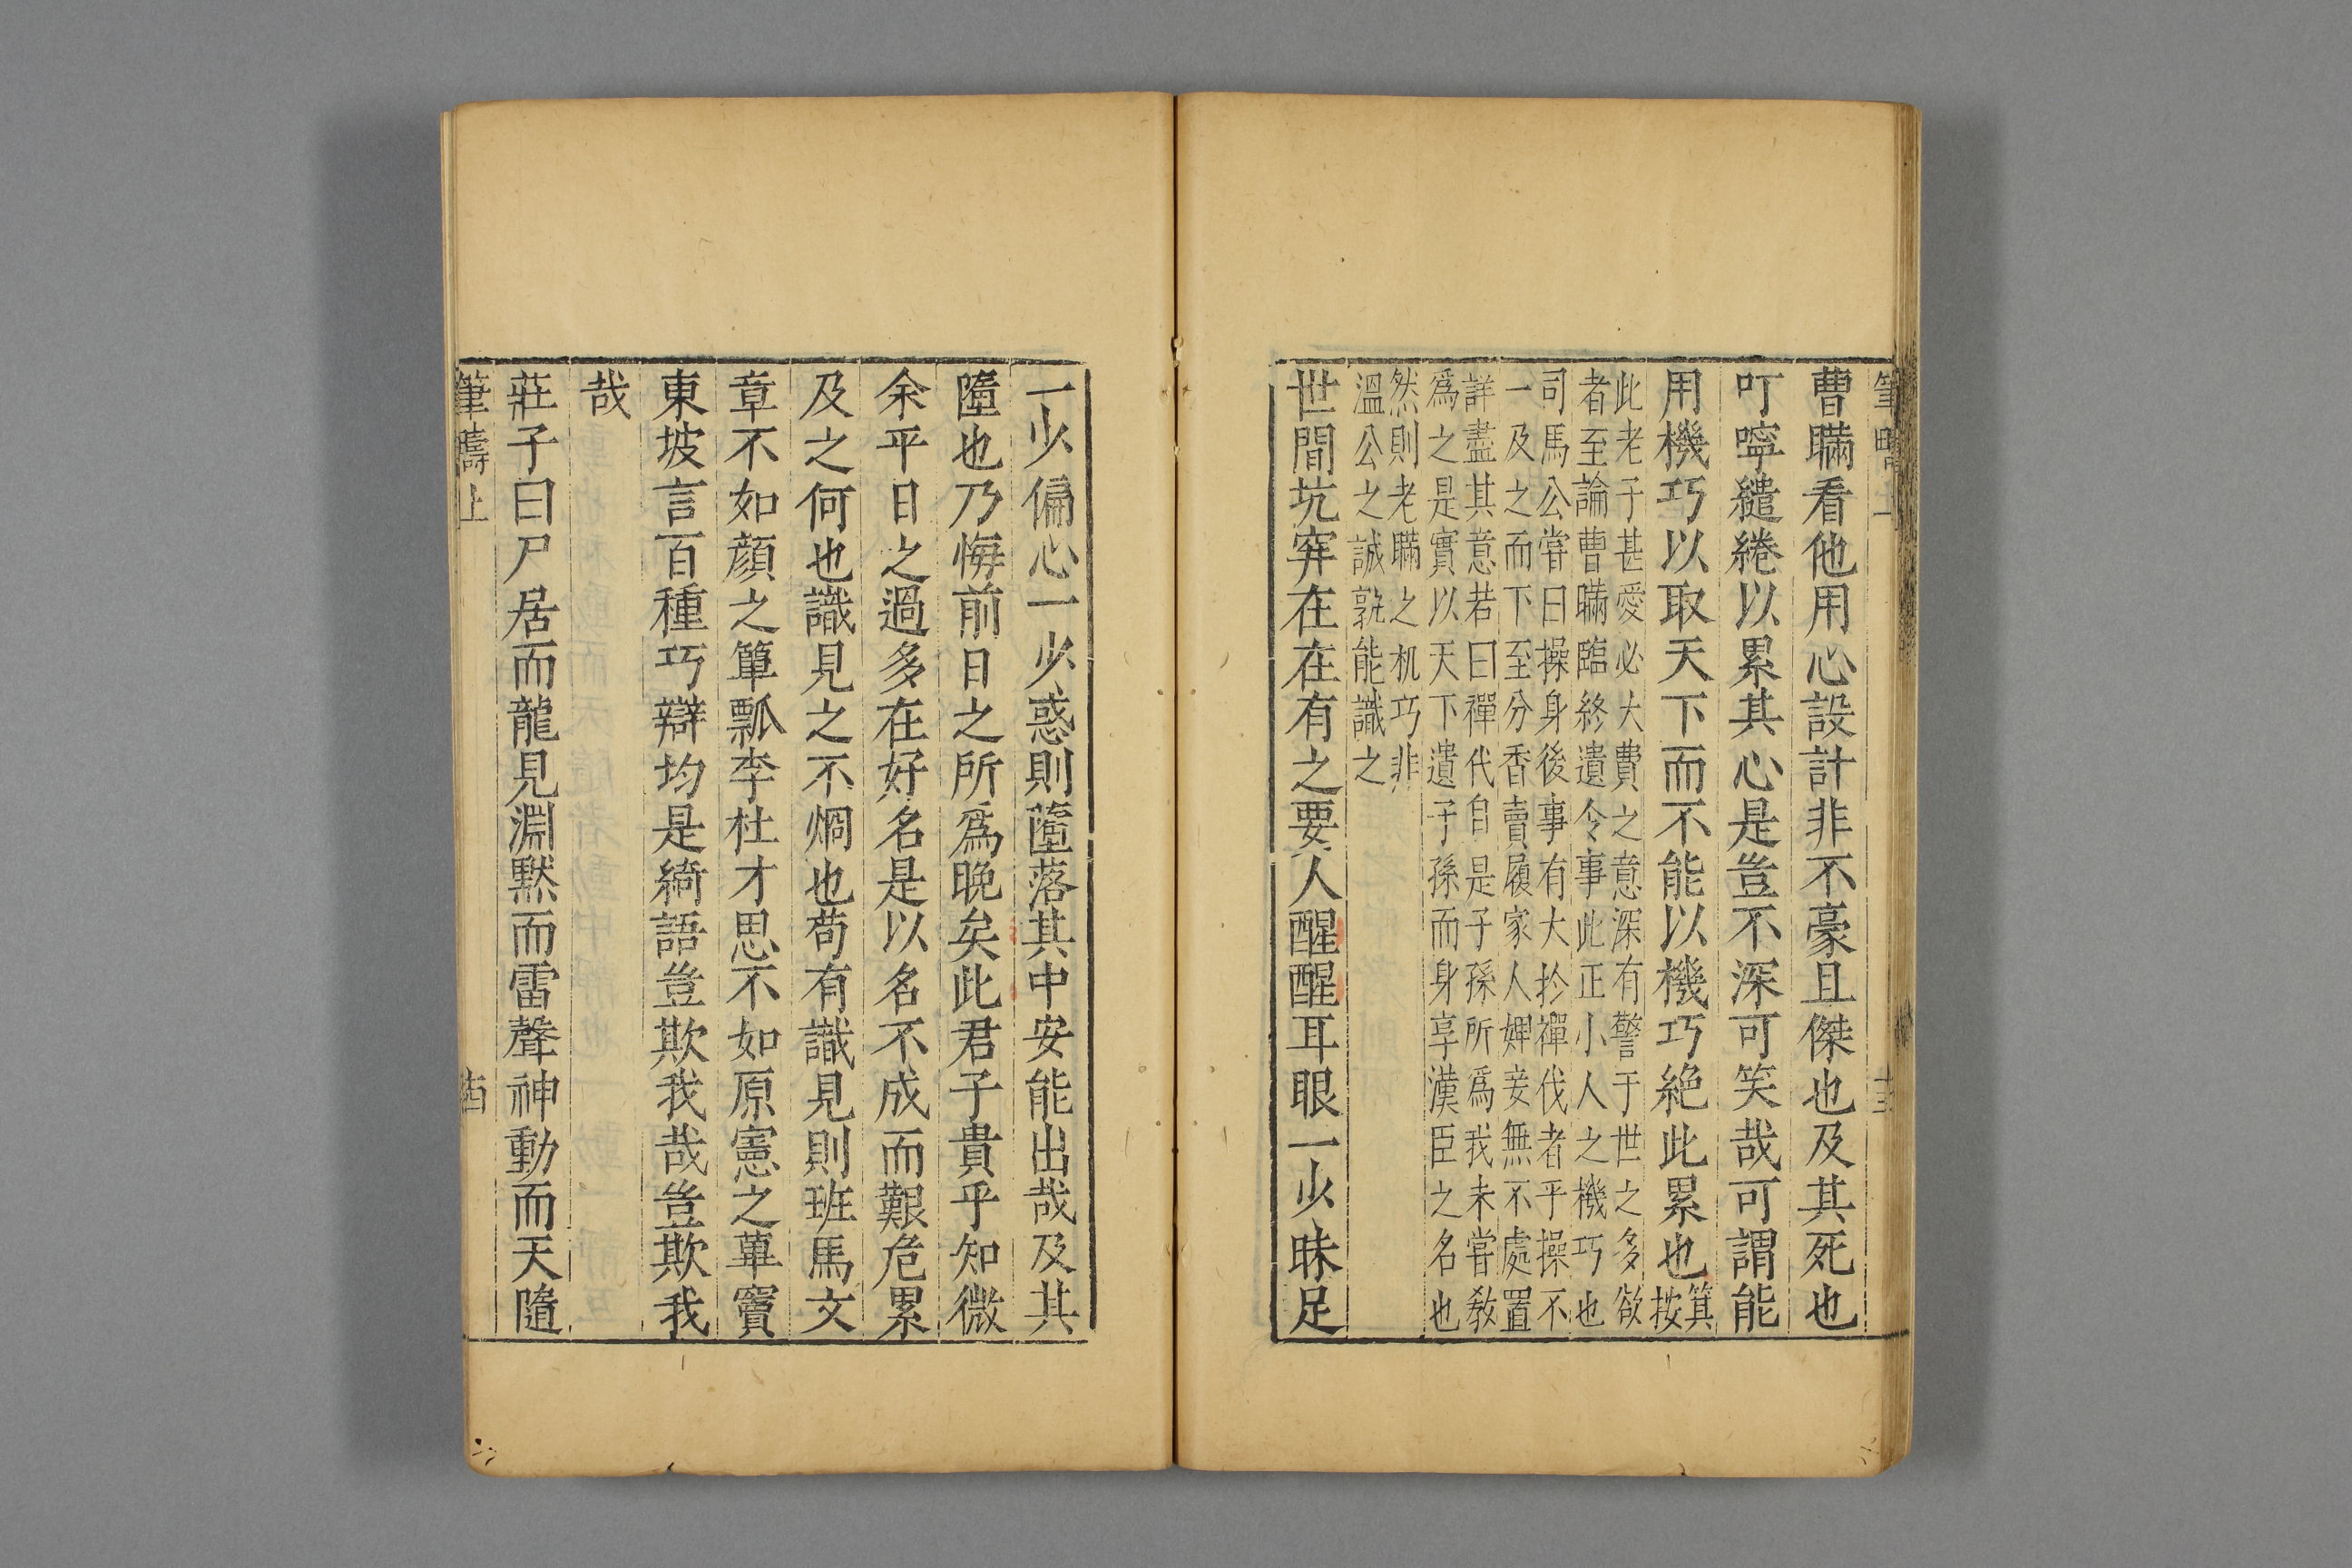 筆疇上
十三
曹瞞看他用心設計非不豪且傑也及其死也
叮嚀繾綣以累其心是豈不深可笑哉可謂能
用機巧以取天下而不能以機巧絕此累也箕
按
此老子甚愛必大費之意深有警于世之多欲
者至論曹瞞臨終遺令事此正小人之機巧也
司馬公嘗曰操身後事有大扵禪伐者乎操不
一及之而下至分香賣履家人婢妾無不處置
詳盡其意若曰禪代自是子孫所爲我未嘗敎
爲之是實以天下遺子孫而身享漢臣之名也
然則老瞞之机巧非
溫公之誠孰能識之
世間坑穽在在有之要人醒醒耳眼一少昧足
一少偏心一少惑則墮落其中安能出哉及其
墮也乃悔前日之所爲晚矣此君子貴乎知微
余平日之過多在好名是以名不成而艱危累
及之何也識見之不烱也苟有識見則班馬文
章不如顔之簞瓢李杜才思不如原憲之蓽竇
東坡言百種巧辯均是綺語豈欺我哉豈欺我
哉
莊子曰尸居而龍見淵黙而雷聲神動而天隨
筆疇上